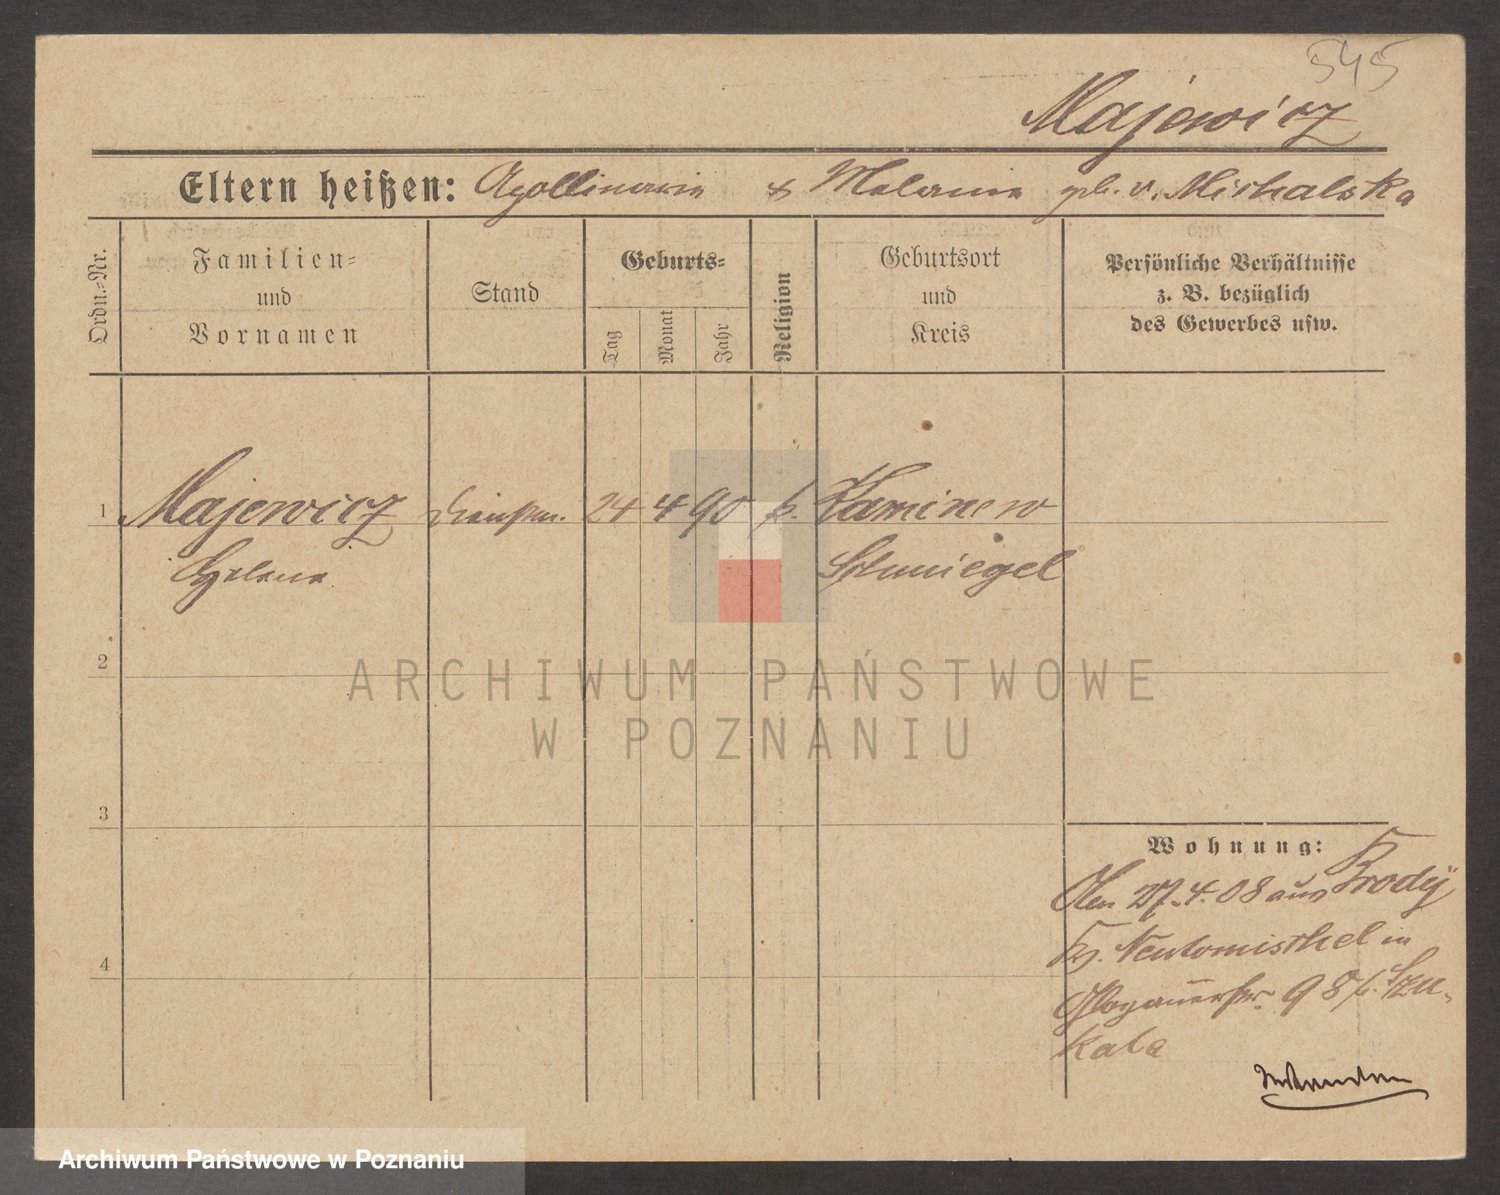 545
Majewicz
Eltern heißen: Apollinarin & Melanie geb. v. Michalska
Ordn.-Nr.
Familien-
und
Vornamen
Stand
Geburts-
Tag
Monat
Jahr
Religion
Geburtsort
und
Kreis
Persönliche Verhältnisse
z. B. bezüglich
des Gewerbes usw.
1 Majewicz Dienstm. 24 4 90 k. Kaminew
Helene Schmiegel
2
ARCHIWUM PAŃSTWOWE
W POZNANIU
3
Wohnung:
Den 27.4.08 aus Brody
Kr. Neutomischel in
Glogauerstr. 98 b. Szu-
kala
4
Archiwum Państwowe w Poznaniu